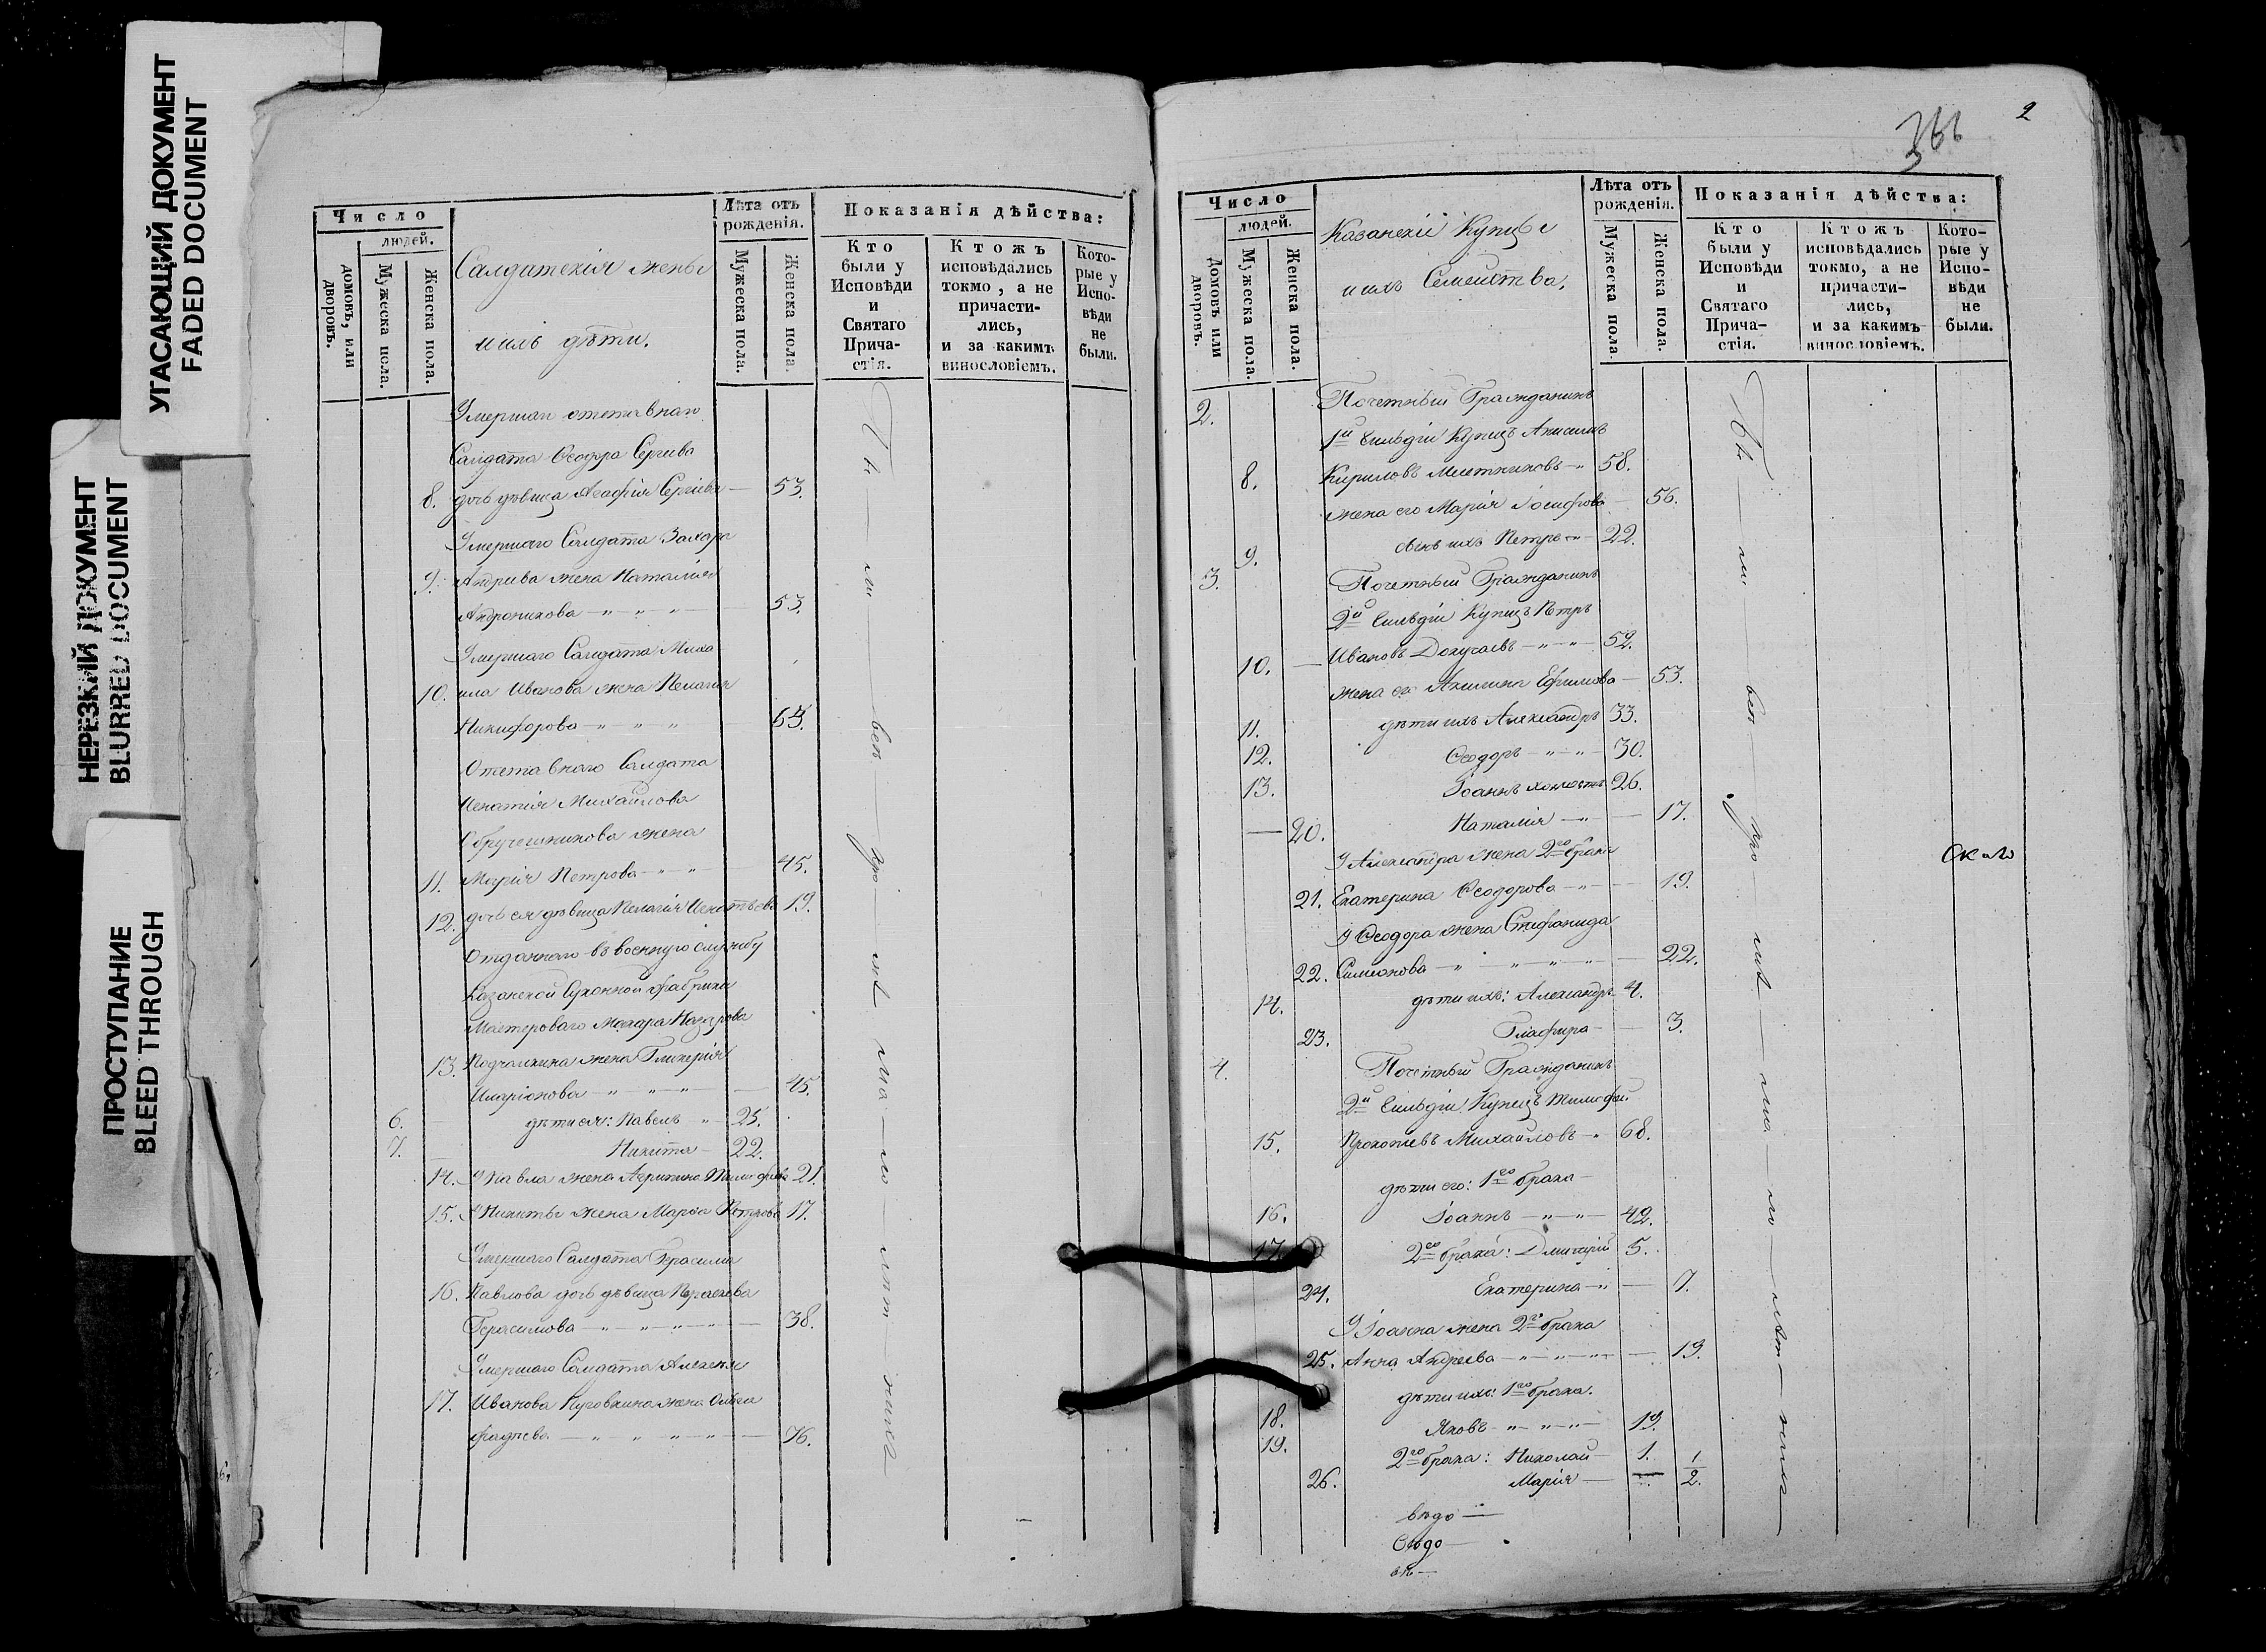 УГАСАЮЩИЙ ДОКУМЕНТ
FADED DOCUMENT
НЕРЕЗКИЙ ДОКУМЕНТ
BLURRED DOCUMENT
ПРОСТУПАНИЕ
BLEED THROUGH
Число
людей.
домовъ, или дворовъ.
Мужеска пола.
Женска пола.
Салдатскія жены
и ихъ дѣти.
Лѣта отъ рожденія.
Мужеска пола.
Женска пола.
Показанія дѣйства:
Кто были у Исповѣди и Святаго Прича-стія.
Ктожъ исповѣдались токмо, а не причасти-лись, и за какимъ винословіемъ.
Кото-рые у Испо-вѣди не были.
Салдата Ѳеодора Сергѣева
8. дочь дѣвица Агафія Сергіева — 53.
Умершаго Салдата Захара
9. Андреева жена Наталія
Андроникова — 53.
Умершаго Салдата Миха-
10. ила Иванова жена Пелагія
Никифорова
Отставнаго Салдата
Игнатія Михайлова
жена
11. Марія Петрова — 45.
12. дочь ея дѣвица Пелагія Игнатьева 19.
Отданнаго въ военную службу
Казанской Суконной фабрики
Мастероваго Назарова
13. жена Гликерія
Иларіонова — 45.
6. дѣти ея: Павелъ — 25.
7. Никита — 22.
14. У Павла жена 21.
15. У Никиты жена Марѳа Петрова 17.
Умершаго Салдата Герасима
16. Павлова дочь дѣвица Параскева
Герасимова — 38.
Умершаго Салдата Алексея
17. Иванова жена Ольга
Фадѣева — 76.
366
2
Число
людей.
Домовъ или дворовъ.
Мужеска пола.
Женска пола.
Казанскіи Купцы
и ихъ Семейства.
Лѣта отъ рожденія.
Мужеска пола.
Женска пола.
Показанія дѣйства:
Кто были у Исповѣди и Святаго Прича-стія.
Ктожъ исповѣдались токмо, а не причасти-лись, и за какимъ винословіемъ.
Кото-рые у Испо-вѣди не были.
2. Почетный Гражданинъ
1й Гильдіи Купецъ
8. Кириловъ Месетниковъ — 58.
жена его Марія Іосифова — 56.
9. сынъ ихъ Петръ — 22.
3. Почетный Гражданинъ
2й Гильдіи Купецъ Петръ
10. Ивановъ Докучаевъ — 52.
жена его Акилина Ефимова — 53.
11. дѣти ихъ Александръ 33.
12. Ѳеодоръ — 30.
13. Іоаннъ холостъ 26.
20. Наталія — 17.
У Александра жена 2го брака
21. Екатерина Ѳеодорова — 19.
У Ѳеодора жена Стефанида
22. Симеонова — 22.
14. дѣти ихъ: Александръ 4.
23. Глафира — 3.
4. Почетный Гражданинъ
2й Гильдіи Купецъ Тимофей
15. Прокопіевъ Михайловъ — 68.
дѣти его: 1го брака —
16. Іоаннъ — 42.
17. 2го брака: Димитрій 5.
24. Екатерина — 7.
У Іоанна жена 2го брака
25. Анна Андреева — 19.
дѣти ихъ: 1го брака.
18. Яковъ — 19.
19. 2го брака: Николай — 1.
26. Марія — 1/2.